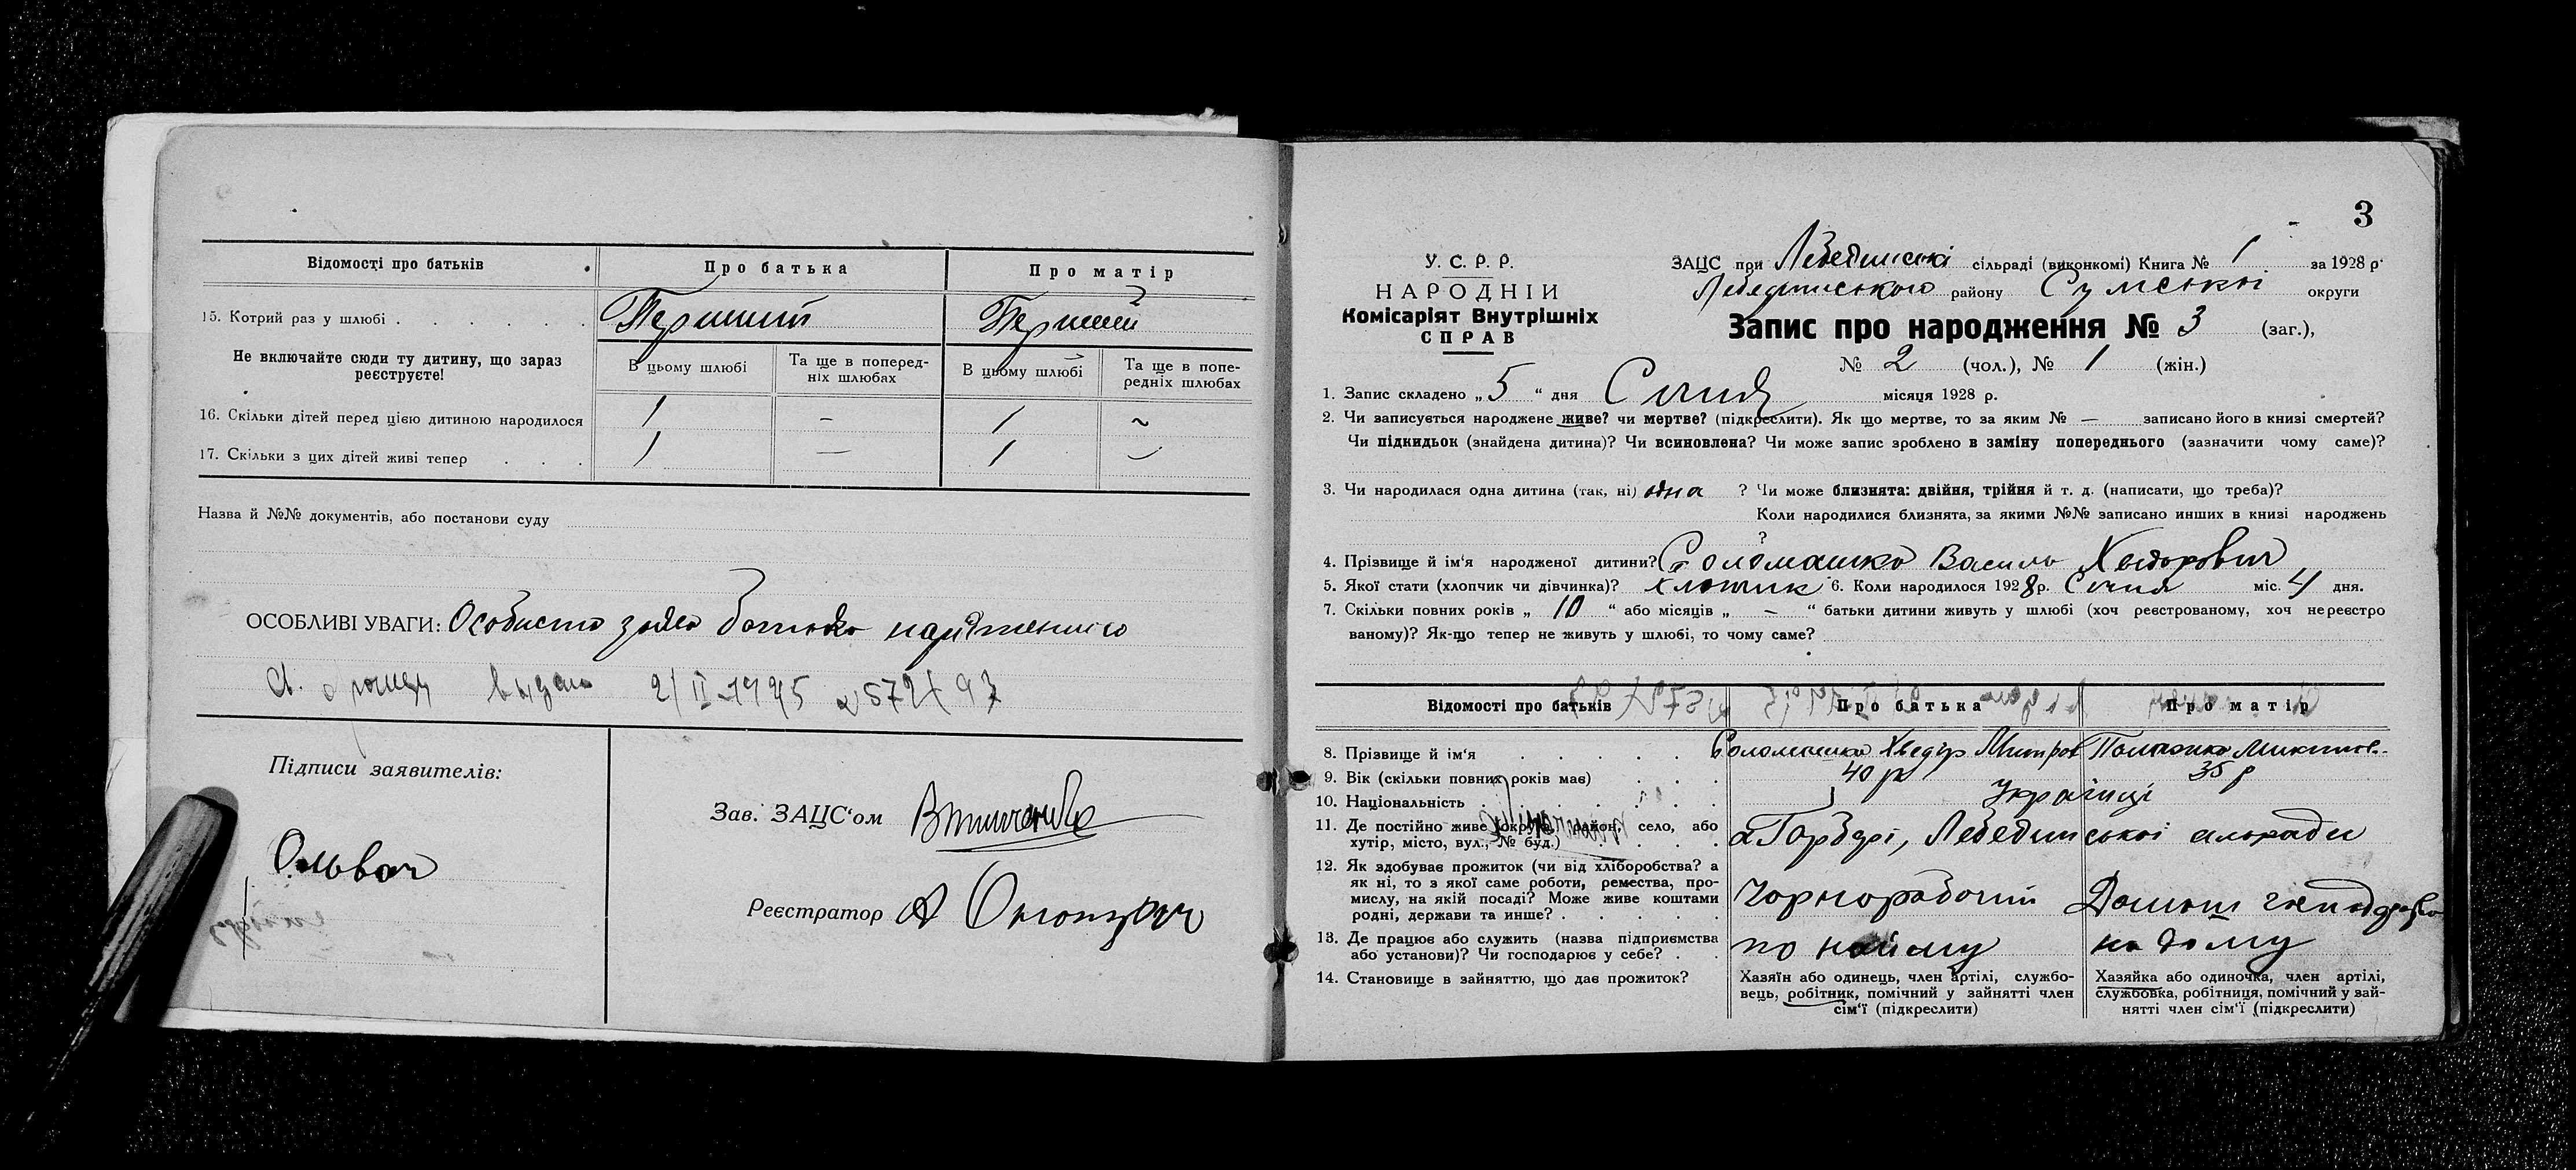 Відомості про батьків
Про батька
Про матір
15. Котрий раз у шлюбі
Перший
Перший
Не включайте сюди ту дитину, що зараз
реєструєте!
В цьому шлюбі
Та ще в поперед-
ніх шлюбах
В цьому шлюбі
Та ще в попе-
редніх шлюбах
16. Скільки дітей перед цією дитиною народилося
1 – 1 ~
17. Скільки з цих дітей живі тепер
1 — 1 –
Назва й №№ документів, або постанови суду
ОСОБЛИВІ УВАГИ: Особисто батька
Підписи заявителів:
Зав. ЗАЦС'ом
Реєстратор А
3
У. С. Р. Р.
НАРОДНІЙ
Комісаріят Внутрішніх
СПРАВ
ЗАЦС при Лебединські сільраді (виконкомі) Книга № 1 за 1928 р.
Лебединського району Сумської округи
Запис про народження № 3 (заг.),
№ 2 (чол.), № 1 (жін.)
1. Запис складено „ 5 “ дня Січня місяця 1928 р.
2. Чи записується народжене живе? чи мертве? (підкреслити). Як що мертве, то за яким № — записано його в книзі смертей?
Чи підкидьок (знайдена дитина)? Чи всиновлена? Чи може запис зроблено в заміну попереднього (зазначити чому саме)?
3. Чи народилася одна дитина (так, ні) одна ? Чи може близнята: двійня, трійня й т. д. (написати, що треба)?
Коли народилися близнята, за якими №№ записано инших в книзі народжень
?
4. Прізвище й ім'я народженої дитини? Соломашко Василь Хведорович
5. Якої стати (хлопчик чи дівчинка)? хлопчик 6. Коли народилося 1928 р. Січня міс. 4 дня.
7. Скільки повних років „ 10 “ або місяців „ – “ батьки дитини живуть у шлюбі (хоч реєстрованому, хоч нереєстро
ваному)? Як-що тепер не живуть у шлюбі, то чому саме?
Відомості про батьків
Про батька
Про матір
8. Прізвище й ім'я
Соломашко Хведір Митров
9. Вік (скільки повних років має)
40 р
35 р
10. Національність
Українці
11. Де постійно живе (округа, район, село, або
хутір, місто, вул., № буд.)
Лебединської сільради
12. Як здобуває прожиток (чи від хліборобства? а
як ні, то з якої саме роботи, ремества, про-
мислу, на якій посаді? Може живе коштами
родні, держави та инше?
Чорноробочий
13. Де працює або служить (назва підприємства
або установи)? Чи господарює у себе?
по найму
на дому
14. Становище в зайняттю, що дає прожиток?
Хазяїн або одинець, член артілі, службо-
вець, робітник, помічний у зайнятті член
сім'ї (підкреслити)
Хазяйка або одиночка, член артілі,
службовка, робітниця, помічний у зай-
нятті член сім'ї (підкреслити)